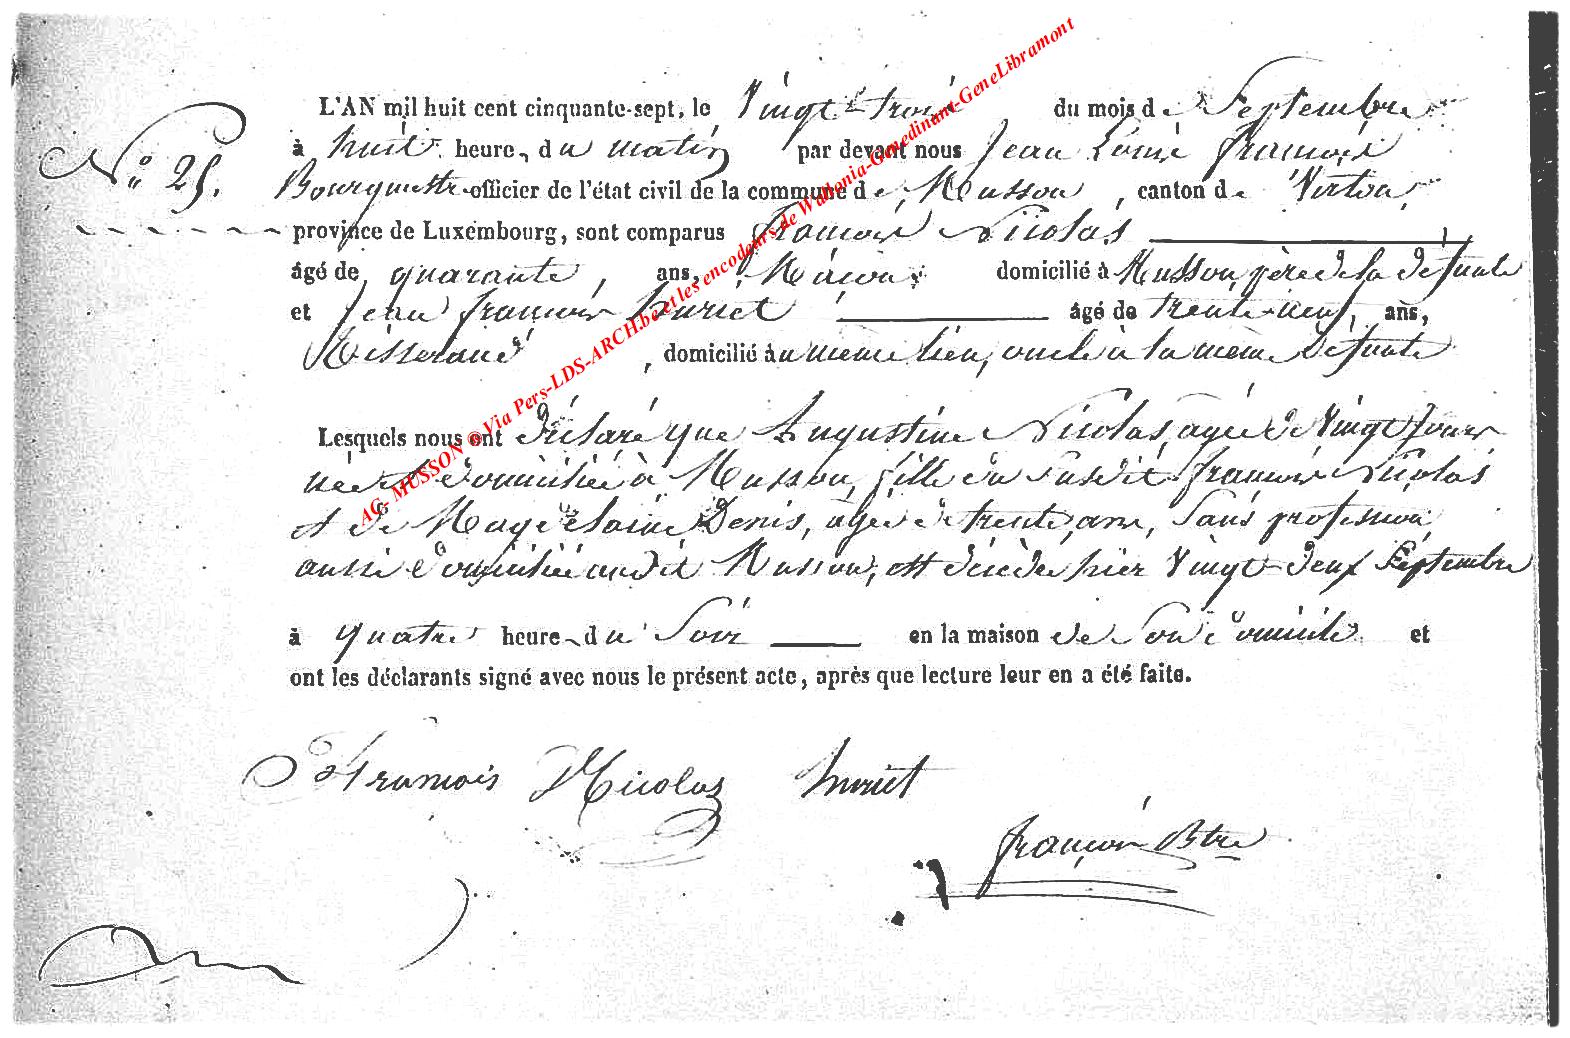 L'AN mil huit cent cinquante-sept, le Vingt-trois du mois de Septembre
à huit heures du matin par devant nous Jean Louis François
N° 25. Bourguettre officier de l'état civil de la commune de Musson, canton de Virton,
province de Luxembourg, sont comparus François Nicolas
âgé de quarante, ans, Maçon, domicilié à Musson, père de la défunte
et Jean François huriet âgé de trente neuf, ans,
Tisserand, domicilié au même lieu, oncle à la même défunte
Lesquels nous ont déclaré que Augustine Nicolas, agée de Vingt jours
née et domiciliée à Musson, fille du susdit françois Nicolas
et de Magdelaine Denis, âgée de trente ans, Sans profession,
aussi domiciliée audit Musson, est décédée hier Vingt-deux Septembre
à quatre heures du Soir en la maison de Son domicile et
ont les déclarants signé avec nous le présent acte, après que lecture leur en a été faite.
François Nicolas huriet
françois Btre
AG- MUSSON © Via Pers-LDS-ARCH.be et les encodeurs de Wallonia-Genedinant-GeneLibramont